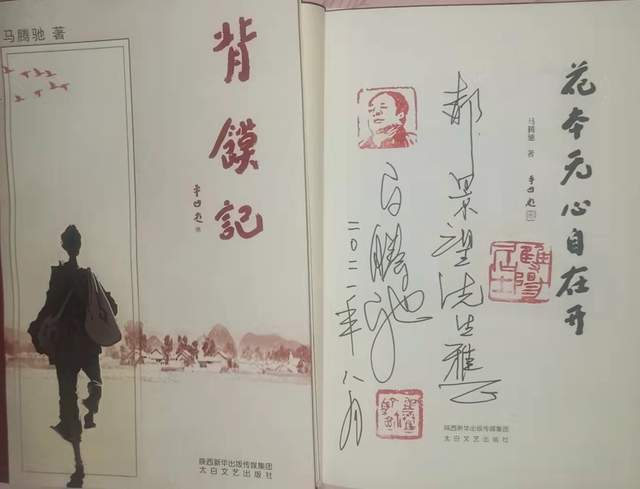 马腾驰 著
背馍记
平凹题
陕西新华出版传媒集团
太白文艺出版社
花本无心自在开
马腾驰 著
平凹题
郝景望先生雅正
马腾驰
二〇二一年八月
陕西新华出版传媒集团
太白文艺出版社